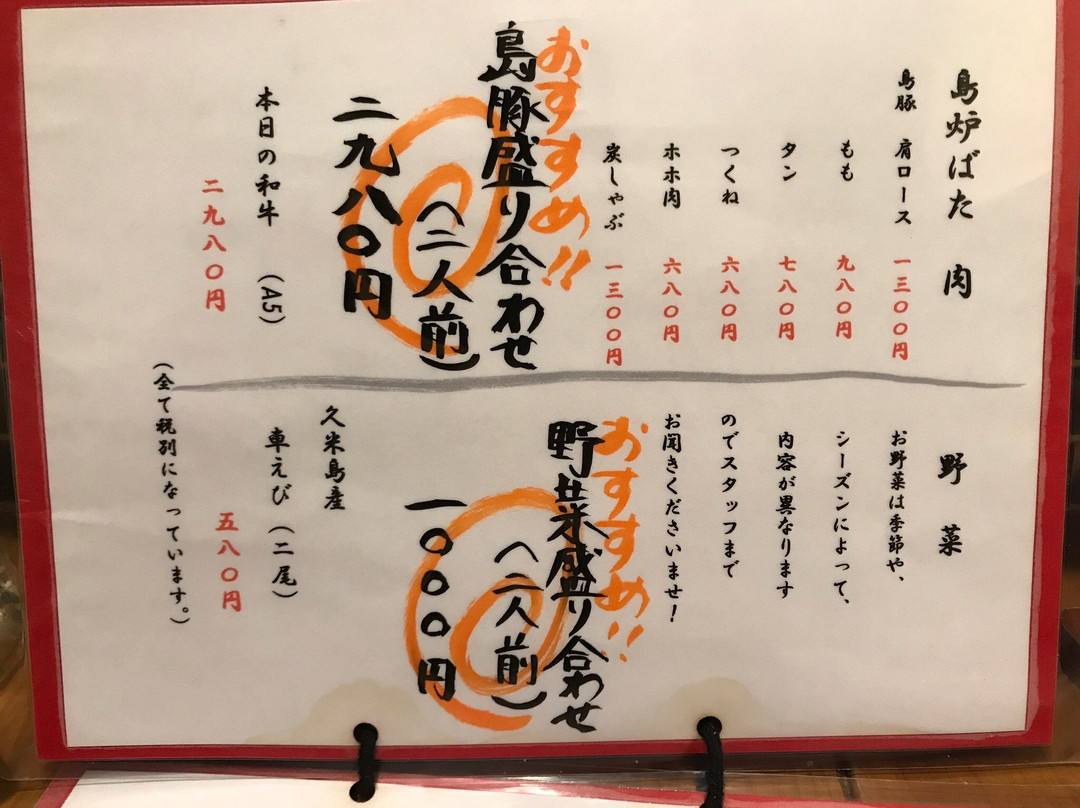 島炉ばた 肉
島豚 肩ロース 一三〇〇円
もも 九八〇円
タン 七八〇円
つくね 六八〇円
ホホ肉 六八〇円
炭しゃぶ 一三〇〇円
おすすめ!!
島豚盛り合わせ
(二人前)
二九八〇円
本日の和牛 (A5)
二九八〇円
野菜
お野菜は季節や、
シーズンによって、
内容が異なります
のでスタッフまで
お聞きくださいませ!
おすすめ!!
野菜盛り合わせ
(二人前)
一〇〇〇円
久米島産
車えび (二尾)
五八〇円
(全て税別になっています。)